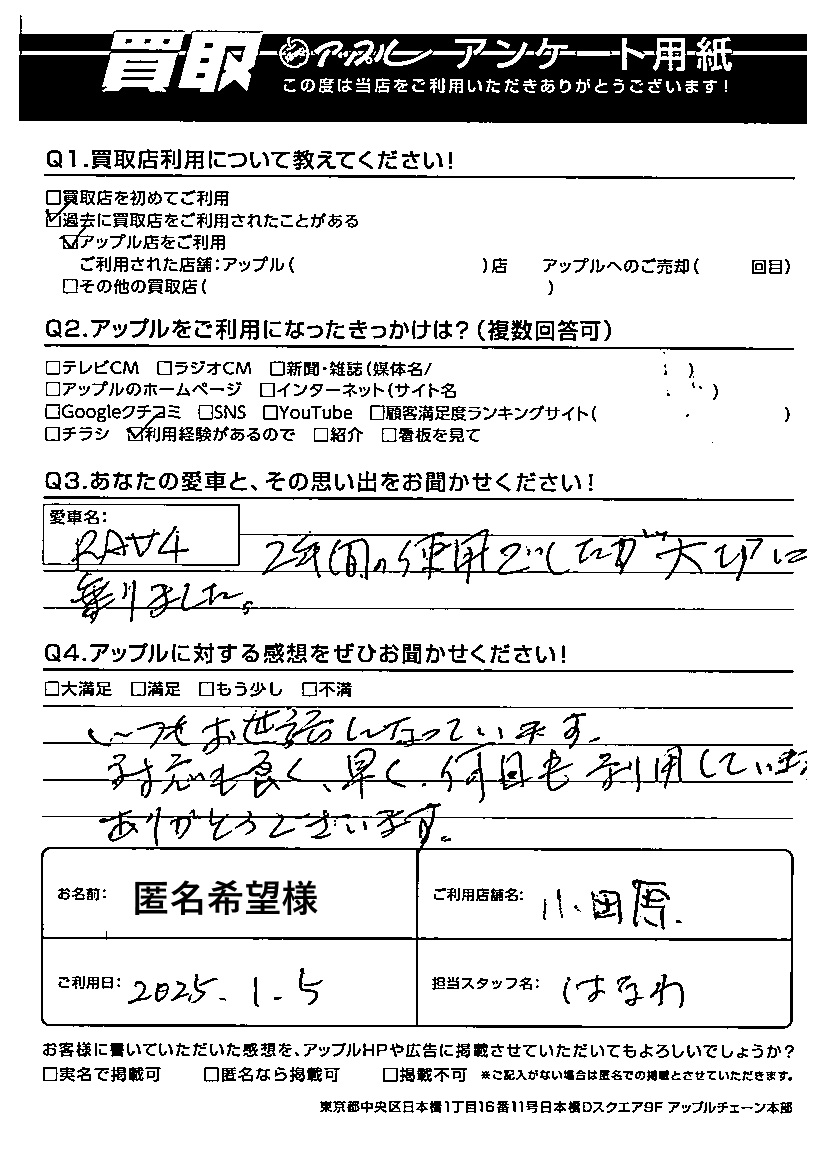 買取 アップル アンケート用紙
この度は当店をご利用いただきありがとうございます!
Q1.買取店利用について教えてください!
□買取店を初めてご利用
☑過去に買取店をご利用されたことがある
☑アップル店をご利用
ご利用された店舗:アップル( )店 アップルへのご売却( 回目)
□その他の買取店( )
Q2.アップルをご利用になったきっかけは?(複数回答可)
□テレビCM □ラジオCM □新聞・雑誌(媒体名/ )
□アップルのホームページ □インターネット(サイト名 )
□Googleクチコミ □SNS □YouTube □顧客満足度ランキングサイト( )
□チラシ ☑利用経験があるので □紹介 □看板を見て
Q3.あなたの愛車と、その思い出をお聞かせください!
愛車名:
RAV4 2年間の使用でしたが大切に
乗りました。
Q4.アップルに対する感想をぜひお聞かせください!
□大満足 □満足 □もう少し □不満
いつもお世話になっています。
対応も良く、早く、何回も利用しています
ありがとうございます。
お名前: 匿名希望様 ご利用店舗名: 小田原.
ご利用日: 2025.1.5 担当スタッフ名: はなわ
お客様に書いていただいた感想を、アップルHPや広告に掲載させていただいてもよろしいでしょうか?
□実名で掲載可 □匿名なら掲載可 □掲載不可 ※ご記入がない場合は匿名での掲載とさせていただきます。
東京都中央区日本橋1丁目16番11号日本橋Dスクエア9F アップルチェーン本部